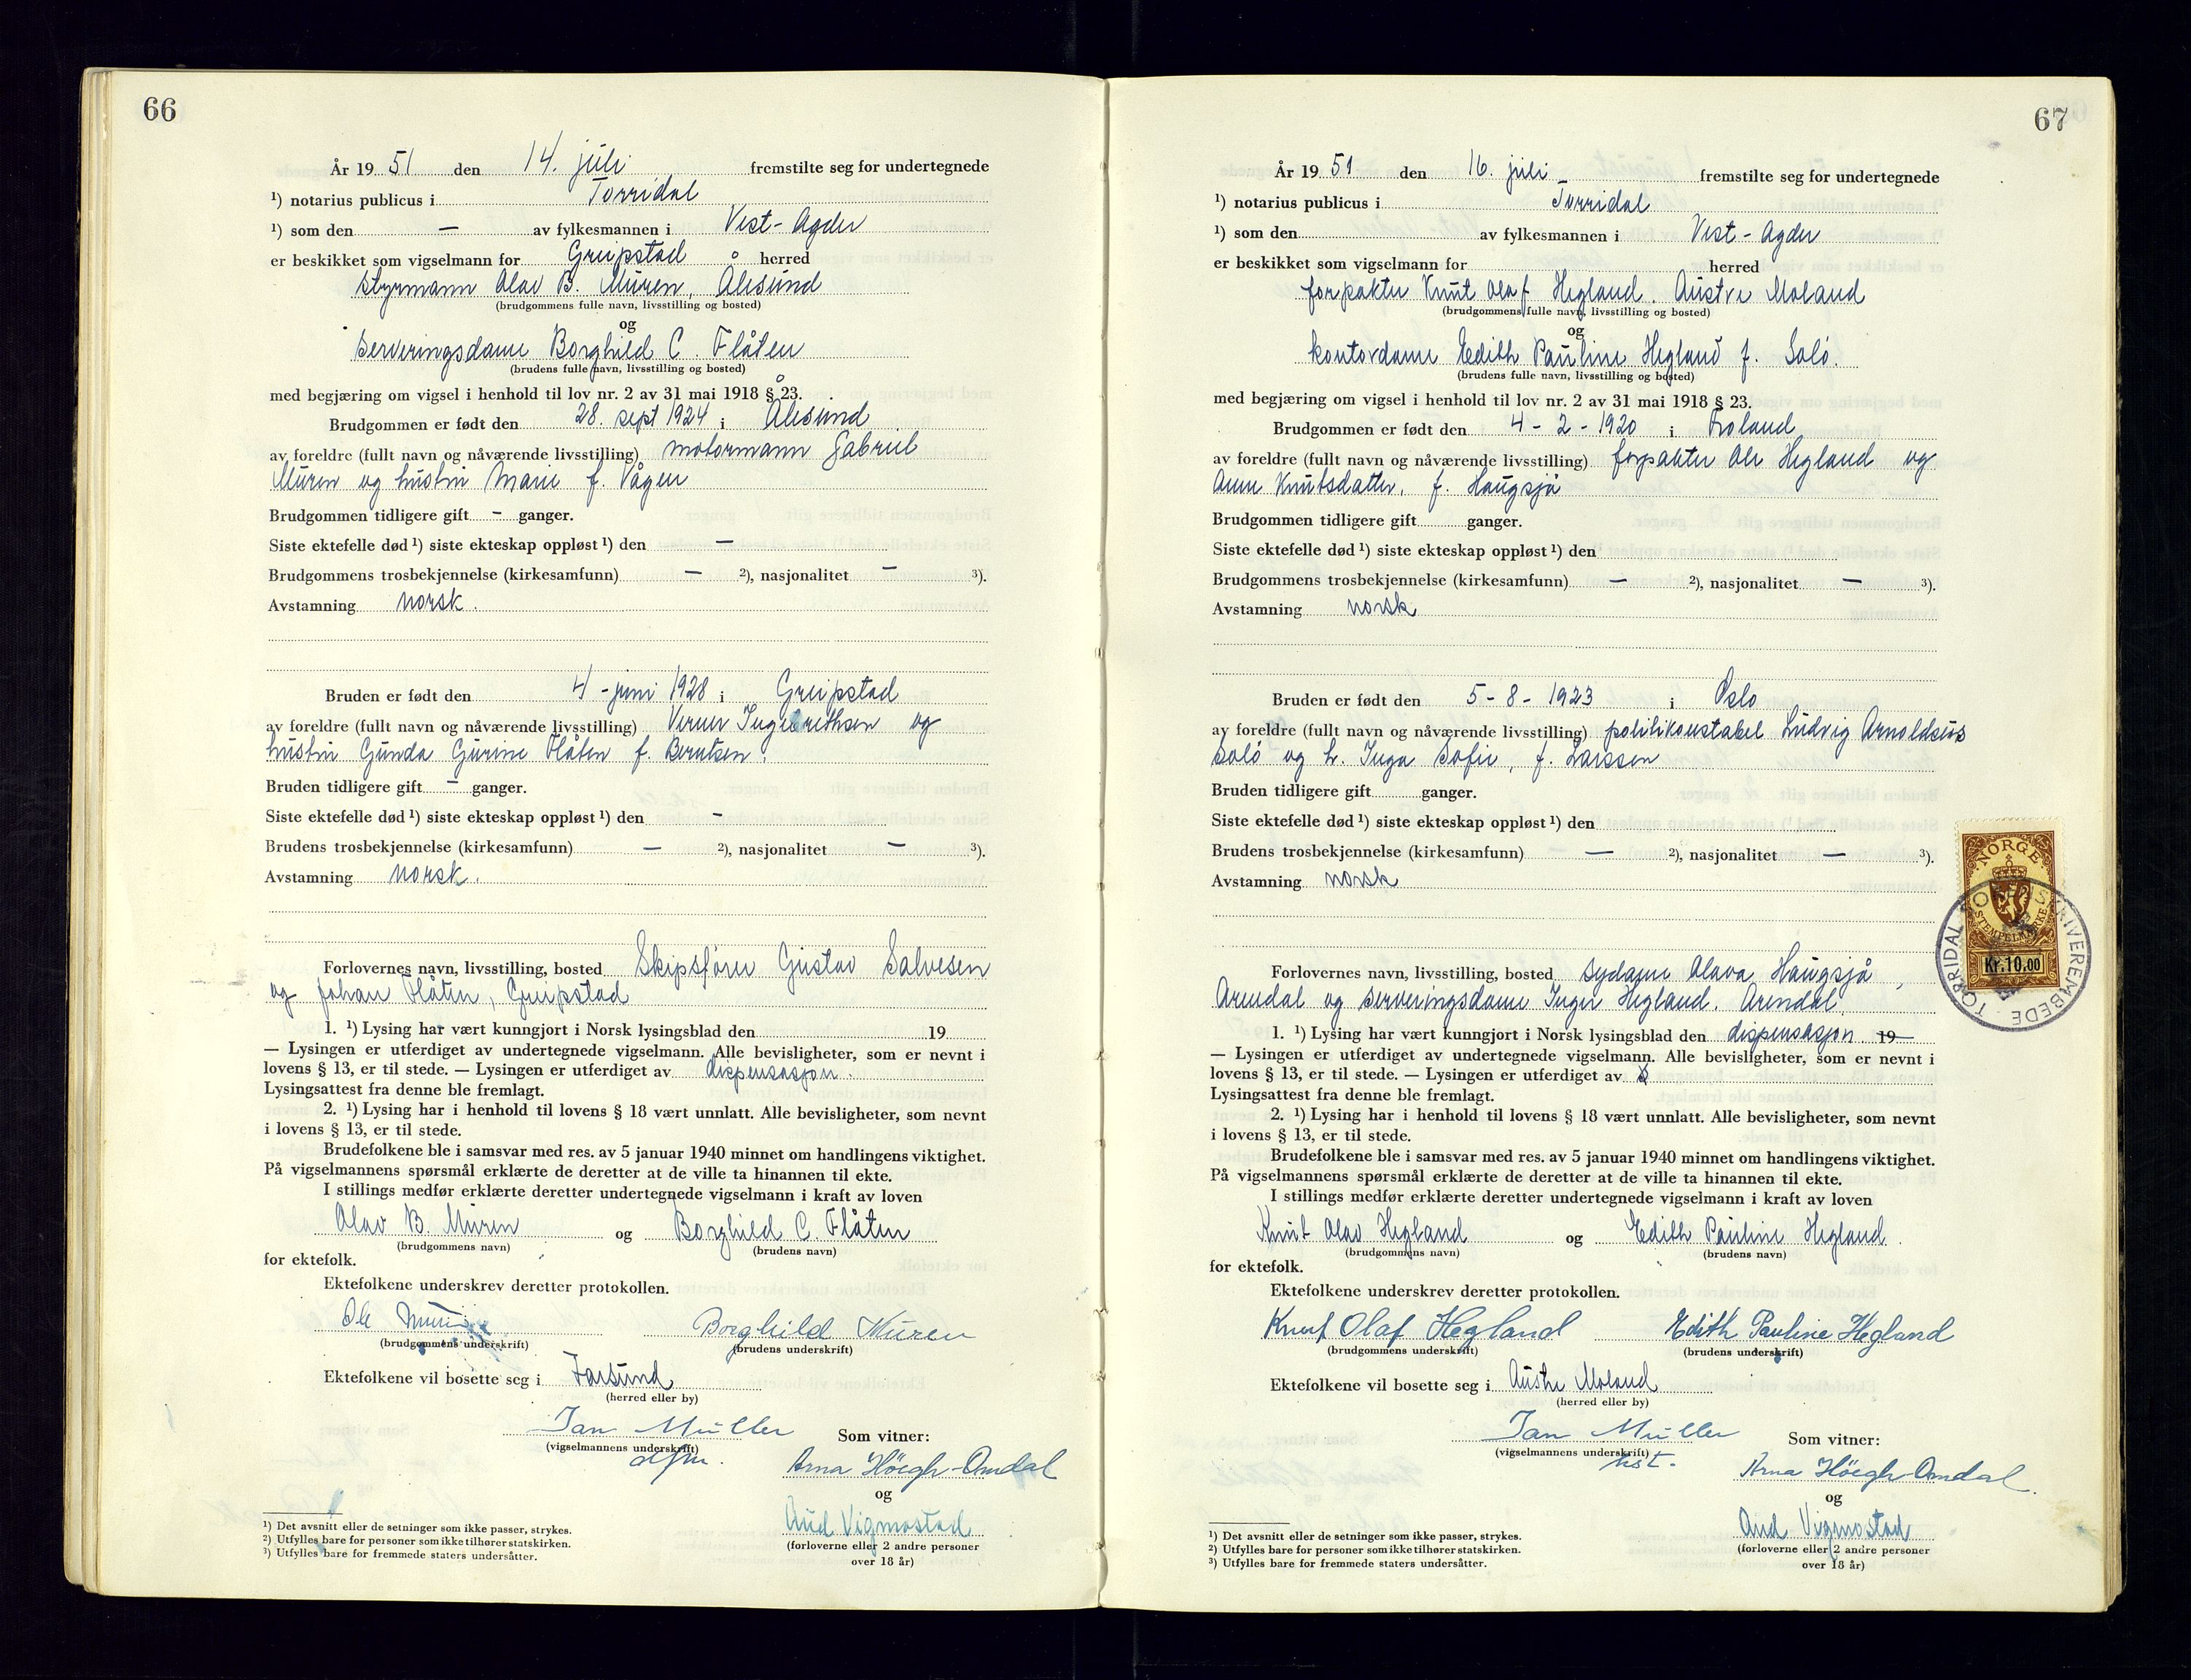 66
År 19 51 den 14. juli fremstilte seg for undertegnede
¹) notarius publicus i Torridal
¹) som den — av fylkesmannen i Vest-Agder
er beskikket som vigselmann for Greipstad herred
styrmann Olav B. Muren, Ålesund
(brudgommens fulle navn, livsstilling og bosted)
og
serveringsdame Borghild C. Flåten
(brudens fulle navn, livsstilling og bosted)
med begjæring om vigsel i henhold til lov nr. 2 av 31 mai 1918 § 23.
Brudgommen er født den 28. sept 1924 i Ålesund
av foreldre (fullt navn og nåværende livsstilling) motormann Gabriel
Muren og hustru Marie f. Vågen
Brudgommen tidligere gift - ganger.
Siste ektefelle død ¹) siste ekteskap oppløst ¹) den —
Brudgommens trosbekjennelse (kirkesamfunn) — ²), nasjonalitet — ³).
Avstamning norsk.
Bruden er født den 4 - juni 1928 i Greipstad
av foreldre (fullt navn og nåværende livsstilling) Verner Ingebrethsen og
hustru Gunda Gurine Flåten f. Berntsen.
Bruden tidligere gift - ganger.
Siste ektefelle død ¹) siste ekteskap oppløst ¹) den -
Brudens trosbekjennelse (kirkesamfunn) — ²), nasjonalitet — ³).
Avstamning norsk.
Forlovernes navn, livsstilling, bosted Skipsfører Gustav Salvesen
og Johan Flåten, Greipstad
1. ¹) Lysing har vært kunngjort i Norsk lysingsblad den 19
— Lysingen er utferdiget av undertegnede vigselmann. Alle bevisligheter, som er nevnt i
lovens § 13, er til stede. — Lysingen er utferdiget av dispensasjon.
Lysingsattest fra denne ble fremlagt.
2. ¹) Lysing har i henhold til lovens § 18 vært unnlatt. Alle bevisligheter, som nevnt
i lovens § 13, er til stede.
Brudefolkene ble i samsvar med res. av 5 januar 1940 minnet om handlingens viktighet.
På vigselmannens spørsmål erklærte de deretter at de ville ta hinannen til ekte.
I stillings medfør erklærte deretter undertegnede vigselmann i kraft av loven
Olav B. Muren og Borghild C. Flåten
(brudgommens navn) (brudens navn)
for ektefolk.
Ektefolkene underskrev deretter protokollen.
Ole Muren Borghild Muren
(brudgommens underskrift) (brudens underskrift)
Ektefolkene vil bosette seg i Farsund
(herred eller by)
Jan Müller Som vitner:
(vigselmannens underskrift)
Arna Höegh-Omdal
og
Aud Vigmostad
(forloverne eller 2 andre personer
over 18 år)
¹) Det avsnitt eller de setninger som ikke passer, strykes.
²) Utfylles bare for personer som ikke tilhører statskirken.
³) Utfylles bare for fremmede staters undersåtter.
67
År 19 51 den 16. juli fremstilte seg for undertegnede
¹) notarius publicus i Torridal
¹) som den av fylkesmannen i Vest-Agder
er beskikket som vigselmann for herred
forpakter Knut Olaf Hegland. Austre Moland
(brudgommens fulle navn, livsstilling og bosted)
og
kontordame Edith Pauline Hegland f. Solö.
(brudens fulle navn, livsstilling og bosted)
med begjæring om vigsel i henhold til lov nr. 2 av 31 mai 1918 § 23.
Brudgommen er født den 4 - 2 - 1920 i Froland
av foreldre (fullt navn og nåværende livsstilling) forpakter Ole Hegland og
Anne Knutsdatter, f. Haugsjå
Brudgommen tidligere gift ganger.
Siste ektefelle død ¹) siste ekteskap oppløst ¹) den
Brudgommens trosbekjennelse (kirkesamfunn) — ²), nasjonalitet — ³).
Avstamning norsk
Bruden er født den 5 - 8 - 1923 i Oslo
av foreldre (fullt navn og nåværende livsstilling) politikonstabel Ludvig Arnoldsens
Solö og h. Inga Sofie, f. Larssen
Bruden tidligere gift ganger.
Siste ektefelle død ¹) siste ekteskap oppløst ¹) den
Brudens trosbekjennelse (kirkesamfunn) — ²), nasjonalitet — ³).
Avstamning norsk
NORGE
STEMPELMERKE
Kr.10.00
TORRIDAL SORENSKRIVEREMBEDE
Forlovernes navn, livsstilling, bosted sydame Olava Haugsjå,
Arendal og serveringsdame Inger Hegland. Arendal.
1. ¹) Lysing har vært kunngjort i Norsk lysingsblad den dispensasjon 19
— Lysingen er utferdiget av undertegnede vigselmann. Alle bevisligheter, som er nevnt i
lovens § 13, er til stede. — Lysingen er utferdiget av
Lysingsattest fra denne ble fremlagt.
2. ¹) Lysing har i henhold til lovens § 18 vært unnlatt. Alle bevisligheter, som nevnt
i lovens § 13, er til stede.
Brudefolkene ble i samsvar med res. av 5 januar 1940 minnet om handlingens viktighet.
På vigselmannens spørsmål erklærte de deretter at de ville ta hinannen til ekte.
I stillings medfør erklærte deretter undertegnede vigselmann i kraft av loven
Knut Olav Hegland og Edith Pauline Hegland.
(brudgommens navn) (brudens navn)
for ektefolk.
Ektefolkene underskrev deretter protokollen.
Knut Olaf Hegland Edith Pauline Hegland
(brudgommens underskrift) (brudens underskrift)
Ektefolkene vil bosette seg i Austre Moland
(herred eller by)
Jan Müller Som vitner:
(vigselmannens underskrift)
kst.
Arna Höegh-Omdal.
og
Aud Vigmostad
(forloverne eller 2 andre personer
over 18 år)
¹) Det avsnitt eller de setninger som ikke passer, strykes.
²) Utfylles bare for personer som ikke tilhører statskirken.
³) Utfylles bare for fremmede staters undersåtter.